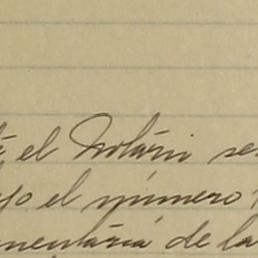 el Notario se
jo el número
mentaria de la